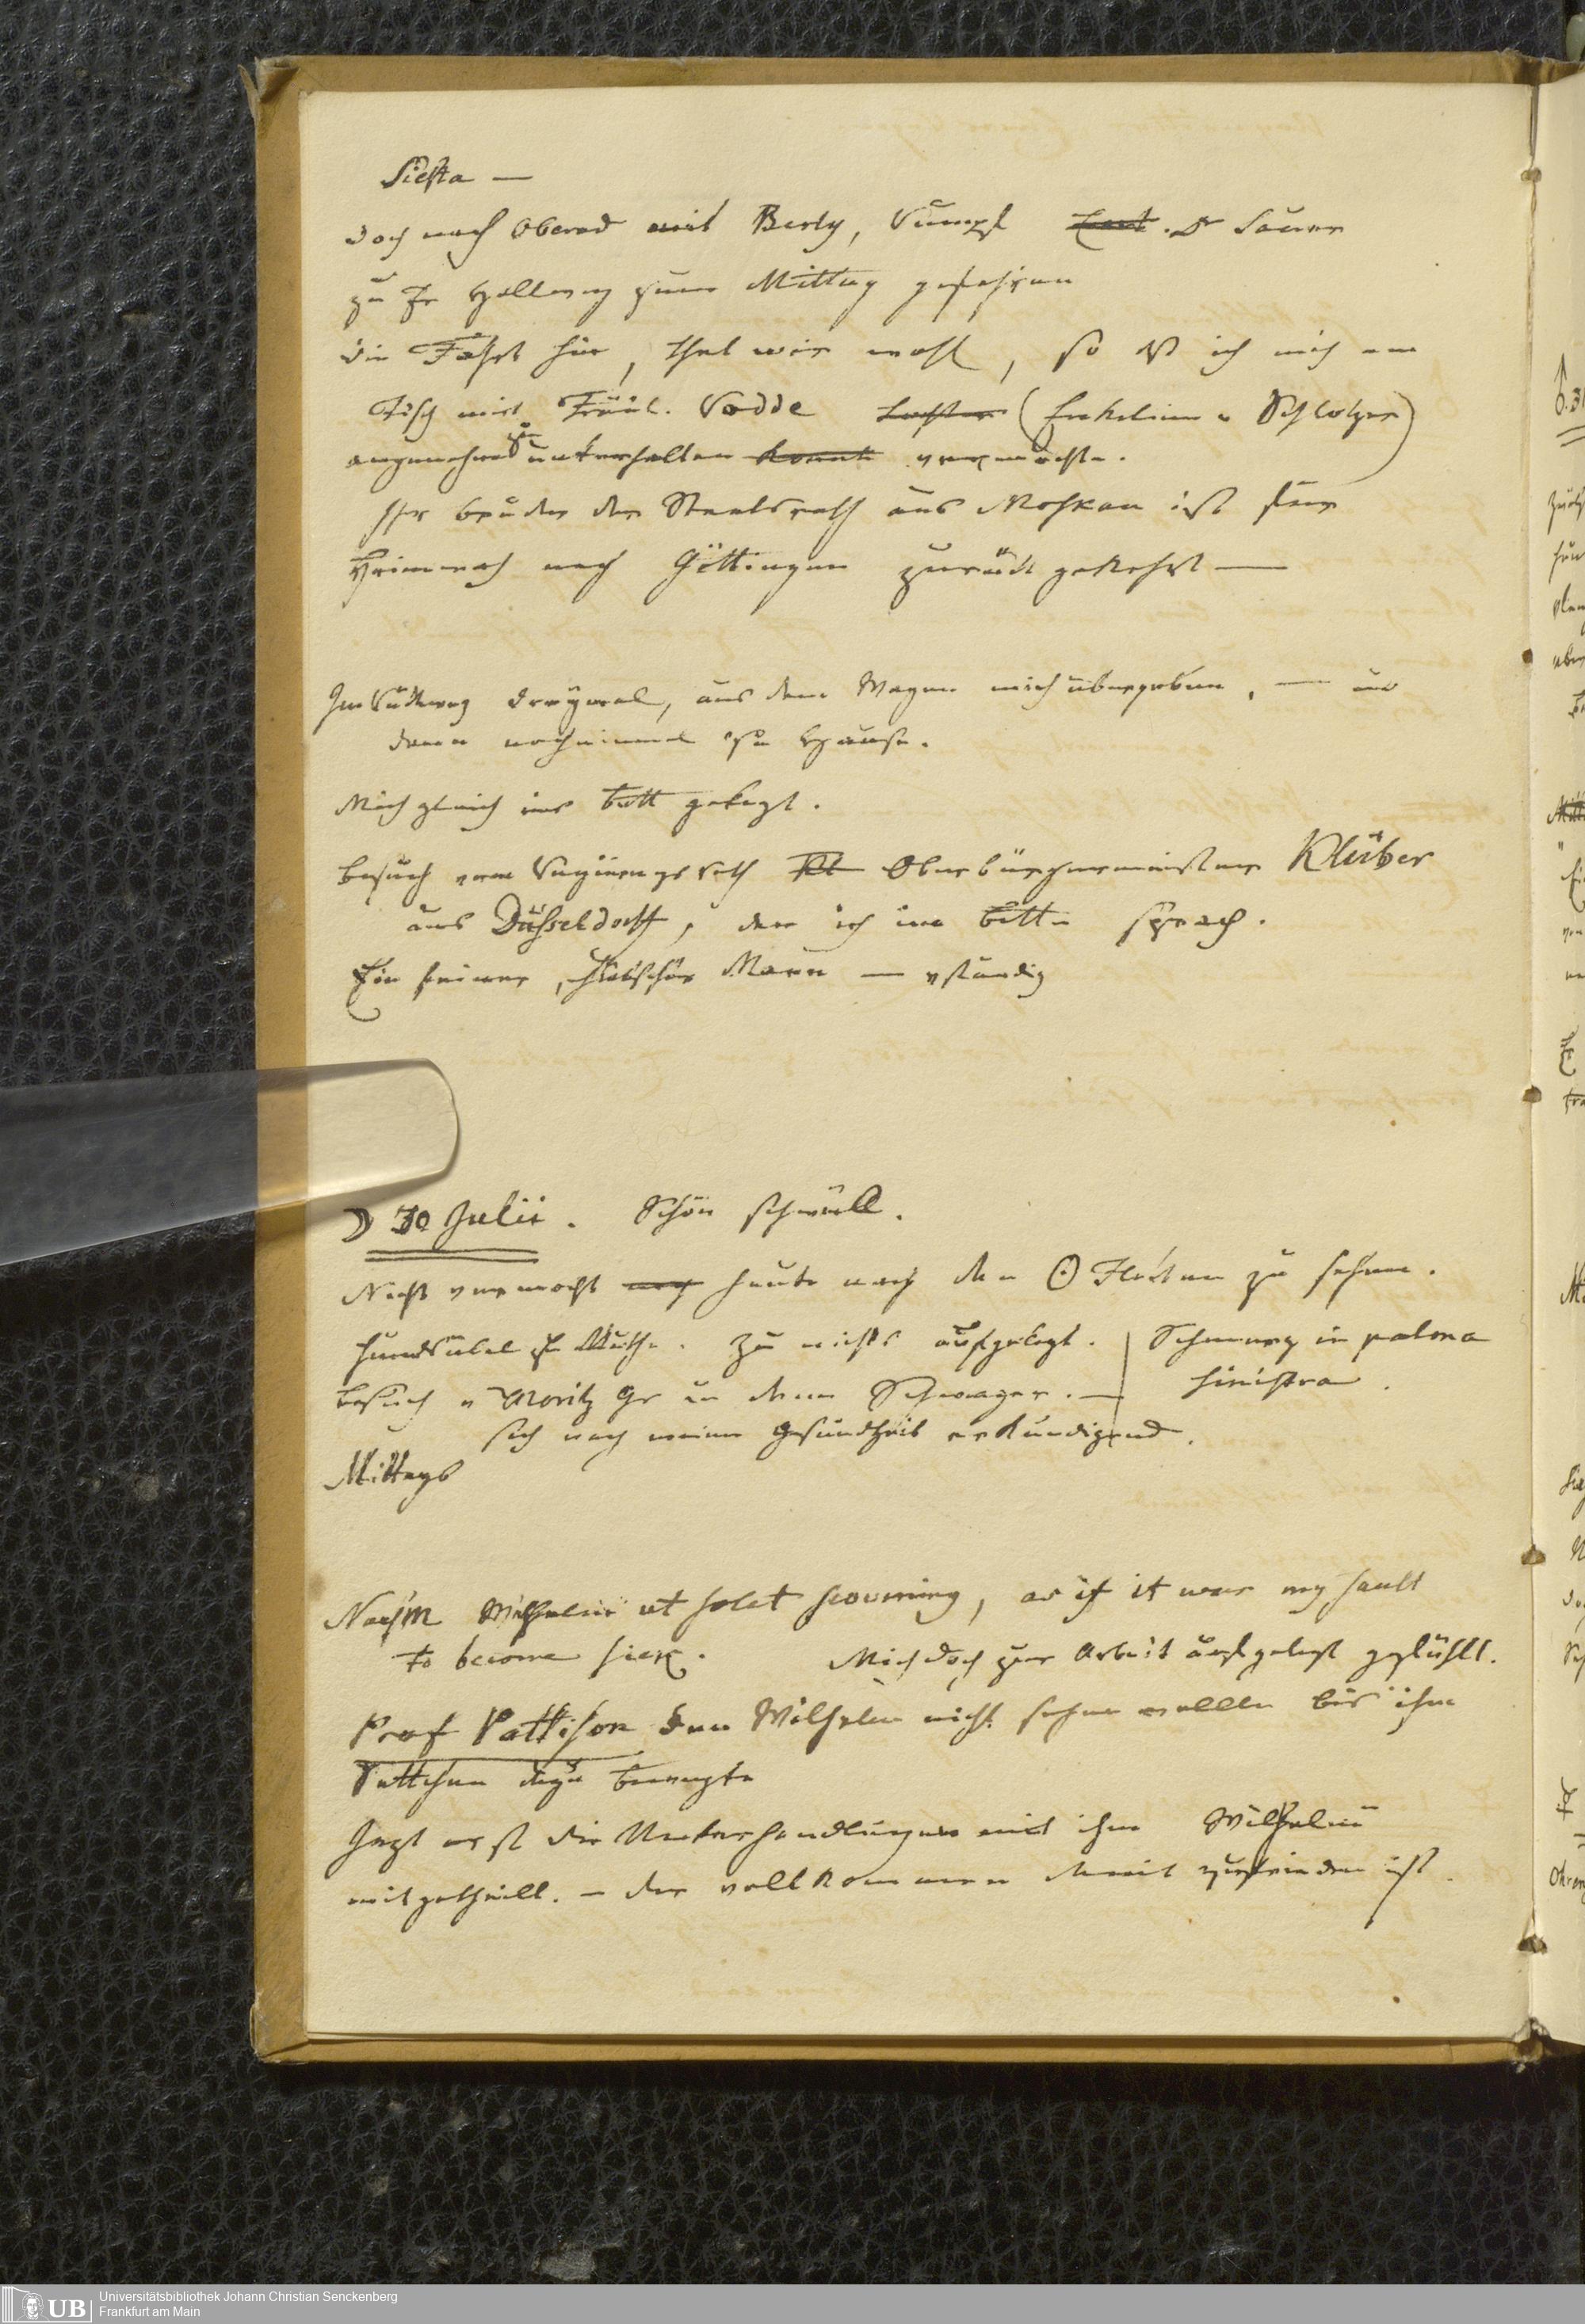 Siesta —
doch nach Oberrad mit Berly, Rumpf Dr Saurer
zu Fr Hollweg zum Mittag gefahren
die Fahrt hin, that mir wohl, so dß ich mich am
Tisch mit Fräul. Rodde (Enkelinn v Schlötzer)
angenehm zu unterhalten konnte vermochte.
Ihr bruder der Staatsrath aus Moskau ist
nach Göttingen zurück gekehrt —
Im Rückweg dreymal, aus dem Wagen mich übergeben, — und
dann nocheinmal zu Hause.
Mich gleich ins bett gelegt.
besuch vom Regierungsrath Kl Oberbürgermeister Klüber
aus Düsseldorff, den ich im bette sprach.
Ein feiner, hübscher Mann — vständig
☽ 30 Julii. Schön schwüll.
Nicht vermocht noch heute nach den ☉ Flecken zu sehen.
hundsübel zu Muthe. Zu nichts aufgelegt. Schmerz in palma
sinistra.
besuch v Moritz Gr und Schwager. —
sich nach meiner Gesundheit erkundigend.
Mittags
NachM Wilhelmi ut solet scouring, as if it was my fault
to become sick. Mich doch zur Arbeit aufgelegt gefühlt.
Prof Pattison den Wilhelm nicht sehen wollte bis ihn
Rettchen dazu bewegte
Jezt erst die Unterhandlungen mit ihm Wilhelmi
mitgetheilt. – der vollkommen damit zufrieden ist.
Universitätsbibliothek Johann Christian Senckenberg
Frankfurt am Main
UB